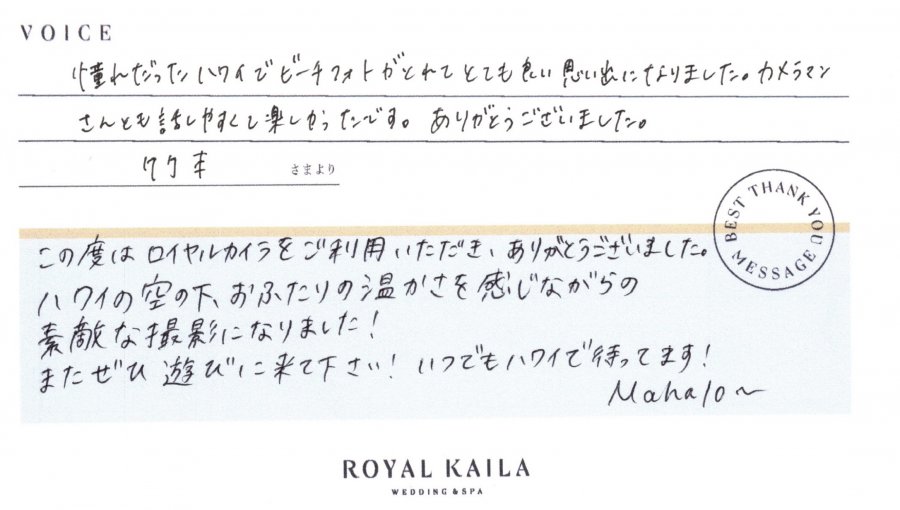 VOICE
憧れだったハワイでビーチフォトがとれてとても良い思い出になりました。カメラマン
さんとも話しやすくて楽しかったです。ありがとうございました。
さまより
BEST THANK YOU MESSAGE
この度はロイヤルカイラをご利用いただき、ありがとうございました。
ハワイの空の下、おふたりの温かさを感じながらの
素敵な撮影になりました!
またぜひ遊びに来て下さい!いつでもハワイで待ってます!
Mahalo~
ROYAL KAILA
WEDDING & SPA